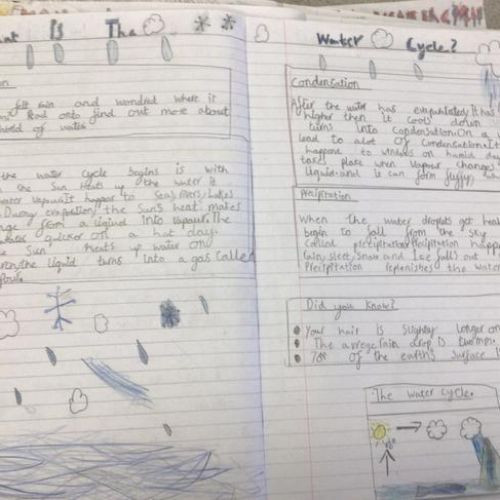 at Is The
Water Cycle?
felt rain and wondred where it
Read onto find out more about
world of water
the water cycle begins is with
the Sun Heats up the water it
water Vapour. It happens to Seas, rivers, Lakes
During evaporation, the sun's heat makes
nge from a liquid into Vapour. The
quicker on a hot day.
Sun heats up water on
the liquid turns into a gas called
Condensation
After the water has evaporated, it has
higher then it cools down
turns into condensation. On a
lead to alot of condensation. It
happens to windows on humid da
takes place when vapour changes
liquid and is can form fluffy, wh
Precipitation
When the water droplets get hea
begin to fall from the sky
Called precipitation. Precipitation happ
rain, sleet, Snow and Ice falls out
Precipitation replenishes the water
Did you know?
Your hair is slightly longer on
The averege rain drop
of the earths surface i
The water cycle.